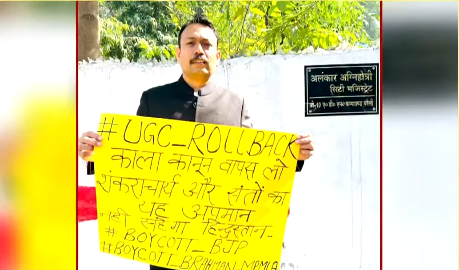 #UGC_ROLLBACK
काला कानून वापस लो
शंकराचार्य और संतों का
यह अपमान
नहीं सहेगा हिन्दुस्तान-
#BOYCOTT_BJP
#BOYCOTT_BRAHMAN_MPMLA
अलंकार अग्निहोत्री
सिटी मजिस्ट्रेट